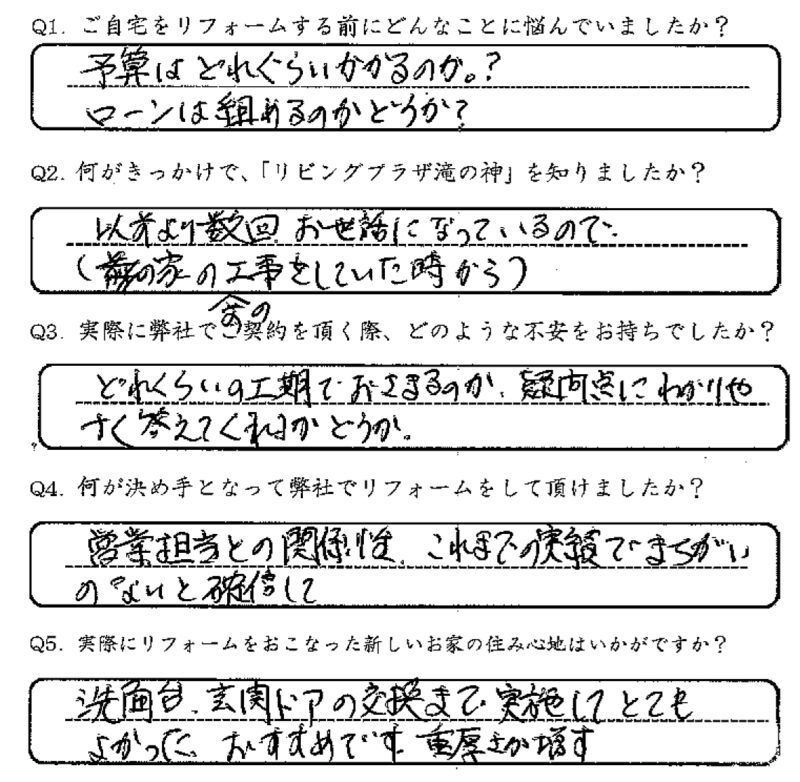 Q1. ご自宅をリフォームする前にどんなことに悩んでいましたか？
予算はどれぐらいかかるのか。？
ローンは組めるのかどうか？
Q2. 何がきっかけで、「リビングプラザ滝の神」を知りましたか？
以前より数回お世話になっているので.
(前の家の工事をしていた時から)
Q3. 実際に弊社でご契約を頂く際、どのような不安をお持ちでしたか？
どれくらいの工期でおさまるのか、疑問点にわかりや
すく答えてくれるかどうか。
Q4. 何が決め手となって弊社でリフォームをして頂けましたか？
営業担当との関係性、これまでの実績でまちがい
のないと確信して
Q5. 実際にリフォームをおこなった新しいお家の住み心地はいかがですか？
洗面台、玄関ドアの交換まで実施してとても
よかった、おすすめです 重厚さが増す